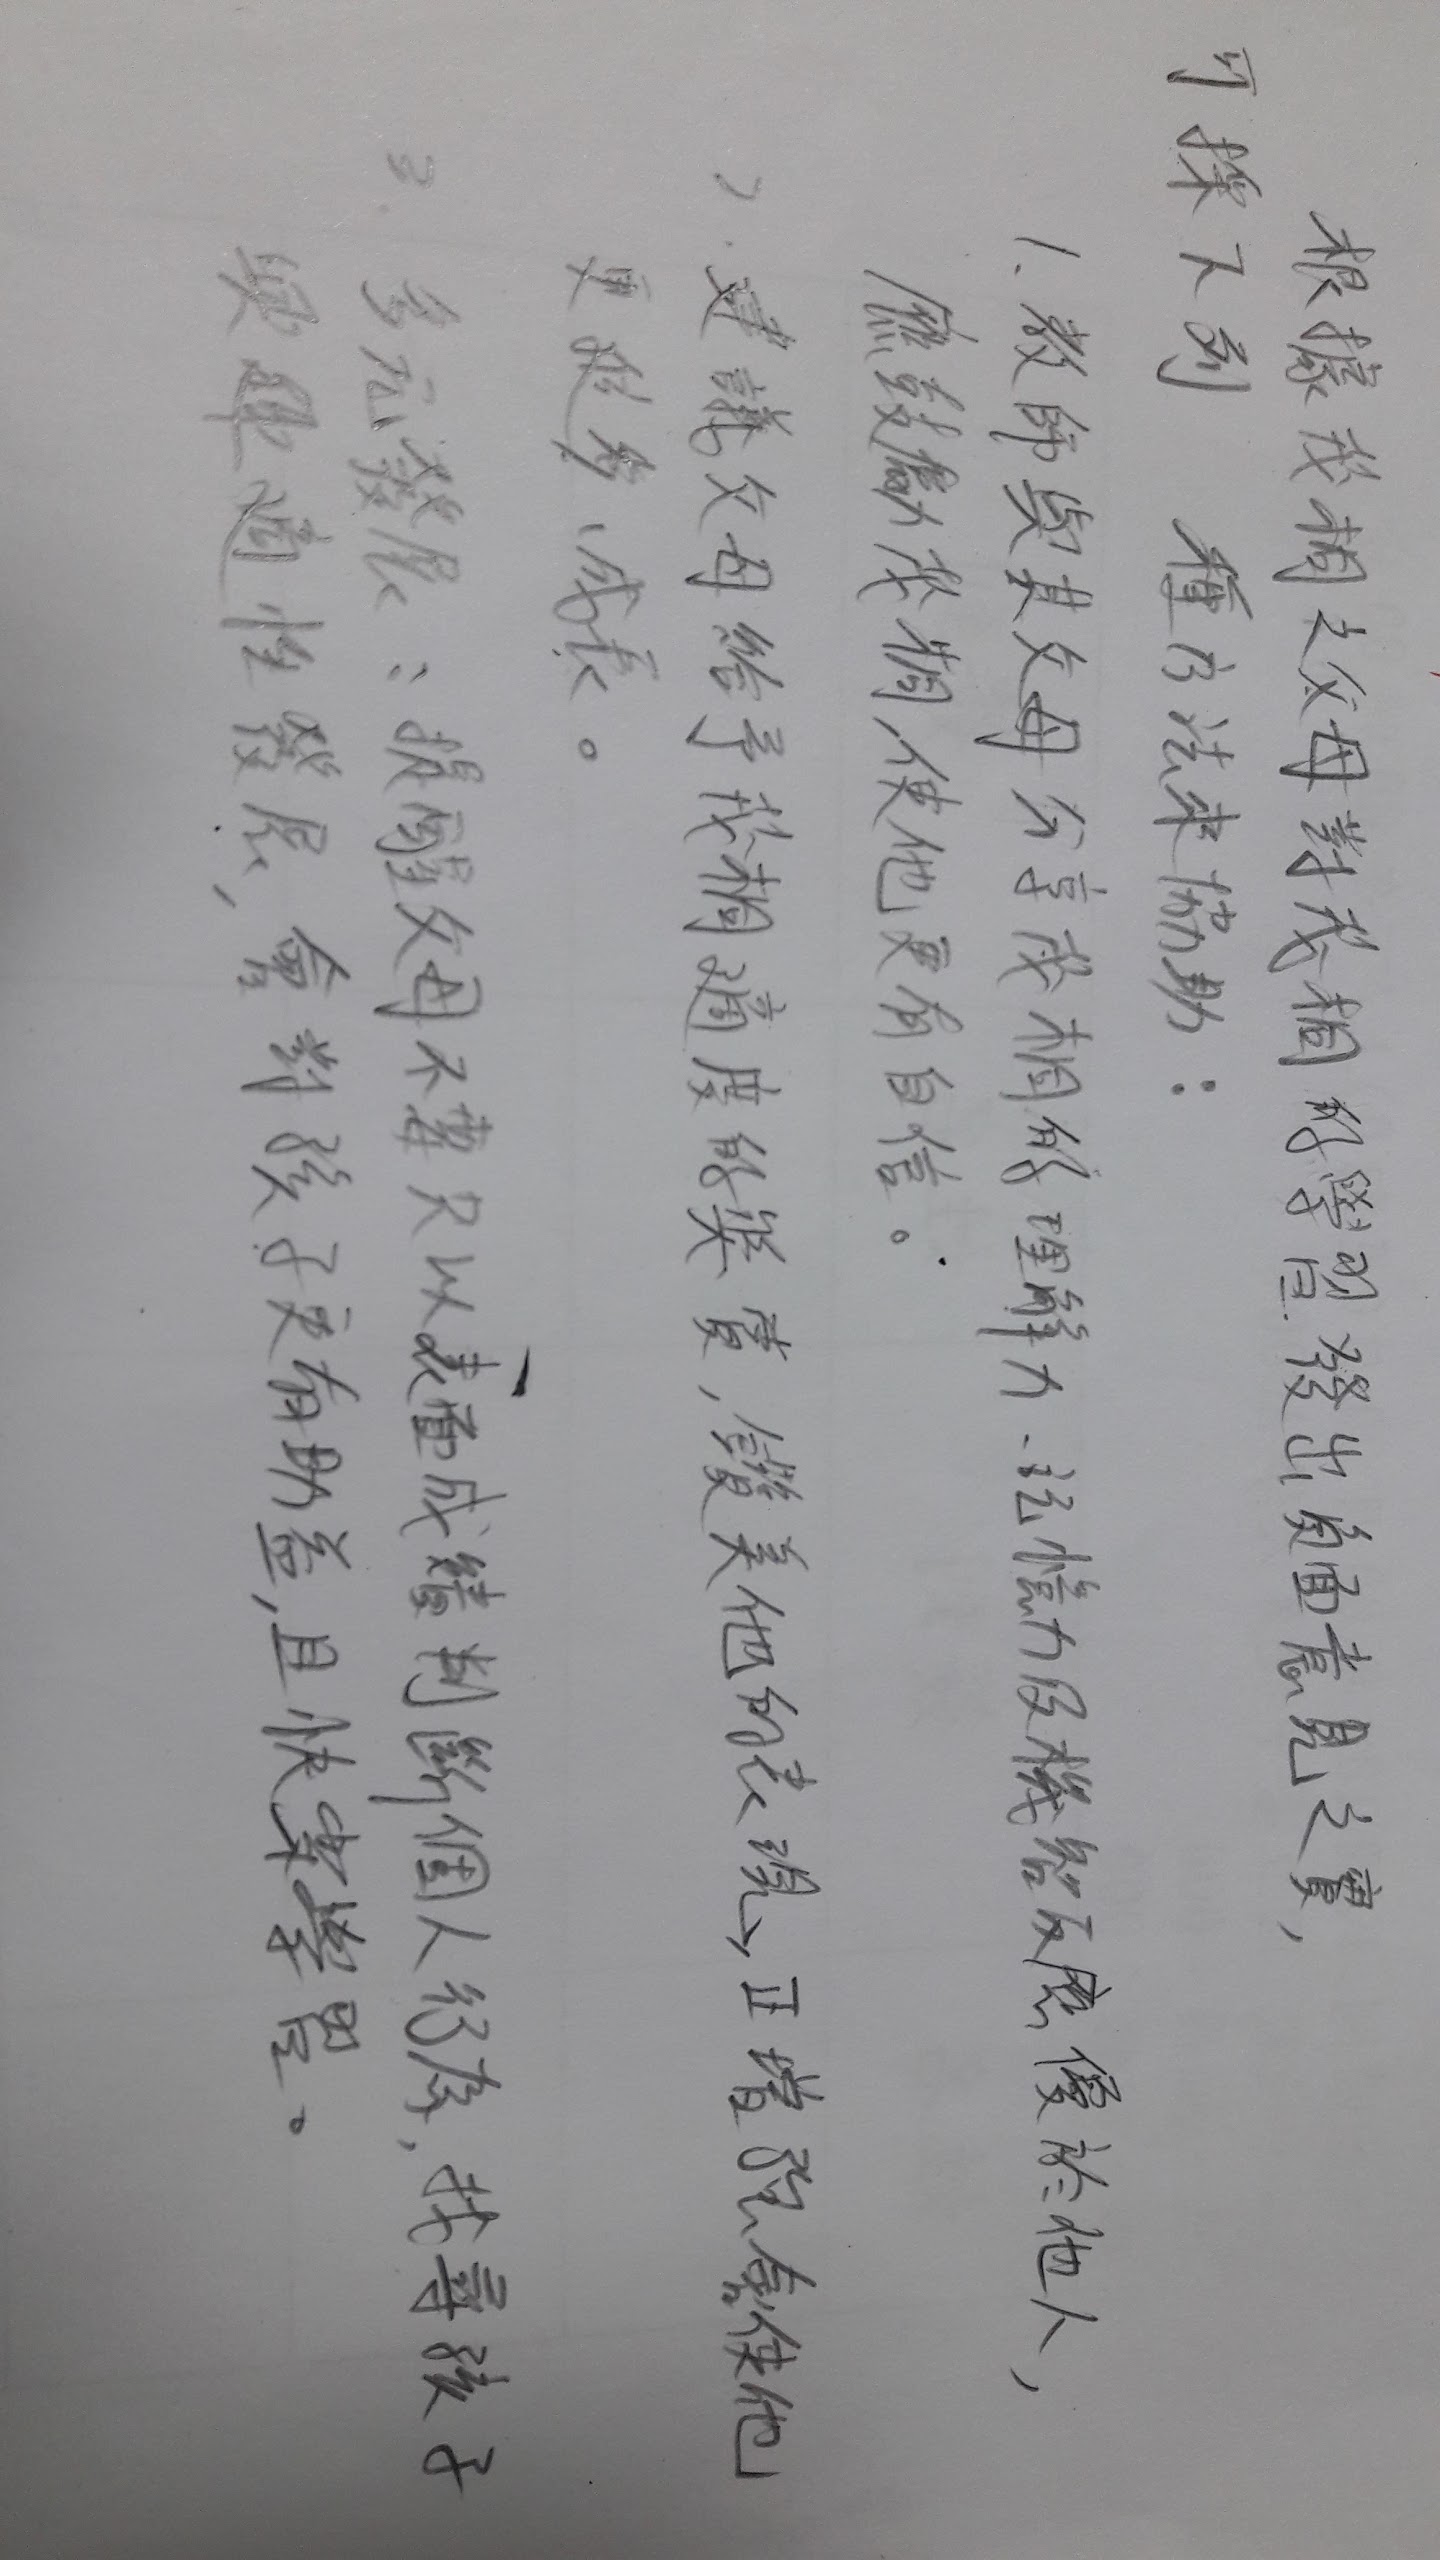 根據我相之父母對我相的學習發出負面意見之實,
可採下列 種方法來協助:
1. 教師與其父母分享我相的理解力、記憶力及機智反應優於他人,
應鼓勵我相,使他更有自信。
2. 建議父母給予我相適度的獎賞,讚美他的表現,正增強會使他
更進步、成長。
3. 多元發展:提醒父母不要只以表面成績判斷個人行為,找尋孩子
興趣適性發展,會對孩子更有助益,且快樂學習。